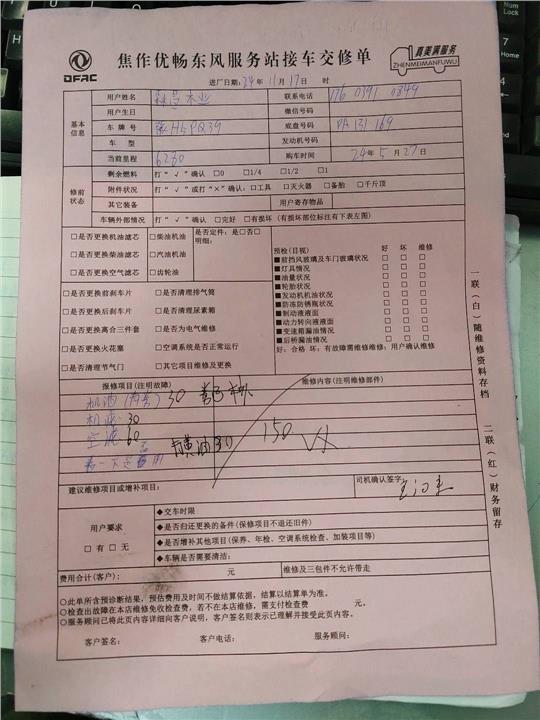 DFAC
焦作优畅东风服务站接车交修单
真美满服务
ZHENMEIMANFUWU
进厂日期：24 年 11 月 17 日 时
基本信息
用户姓名 木业 联系电话 176 0391 0849
用户生日 微信号码
车牌号 豫H5PQ39 底盘号码 PA131169
车型 发动机号码
当前里程 6230 购车时间 24年 5月 27日
修前状态
剩余燃料 打“√”确认 □0 □1/4 □1/2 □1
附件状况 打“√”或打“×”确认：□工具 □灭火器 □备胎 □千斤顶
其它装备 用户寄存物品
车辆外部情况 打“√”确认 □完好 □有损坏（有损坏部位标注有下表左图）
□是否更换机油滤芯 □柴油机油 是否定件：是□否□
明细：
□是否更换柴油滤芯 □汽油机油
□是否更换空气滤芯 □齿轮油
□是否更换前刹车片 □是否清理排气筒
□是否更换后刹车片 □是否清理尿素箱
□是否更换离合三件套 □是否为电气维修
□是否更换火花塞 □空调系统是否正常运行
□是否清理节气门 □其它项目维修及更换
预检（目视） 好 坏 维修
■前挡风玻璃及车门玻璃状况 □ □ □
■灯具情况 □ □ □
■油量状况 □ □ □
■轮胎状况 □ □ □
■发动机机油状况 □ □ □
■防冻防锈瓶状况 □ □ □
■制动液液面 □ □ □
■动力转向液液面 □ □ □
■变速箱漏油情况 □ □ □
■后桥漏油情况 □ □ □
好：合格 坏：有故障需维修维修：用户确认维修
报修项目（注明故障） 维修内容（注明维修部件）
机油 30
机滤 30
空滤 60
黄油30 150
建议维修项目或增补项目： 司机确认签字：
用户要求
□有 □无
◆交车时限
◆是否归还更换的备件（保修项目不退还旧件）
◆是否增补其他项目（保养、年检、空调系统检查、加装项目等）
◆车辆是否需要清洁：
费用合计（客户）： 元 维修及三包件不允许带走
○此单所含预诊断结果，预估费用及时间不做结算依据，结算以结算单为准。
○检查出故障在本店维修免收检查费，若不在本店维修，需支付检查费 元。
○服务顾问已将此页内容详细向客户说明，客户签名则表示已理解并接受此页内容。
客户签名： 客户电话： 服务顾问：
一联（白）随维修资料存档
二联（红）财务留存